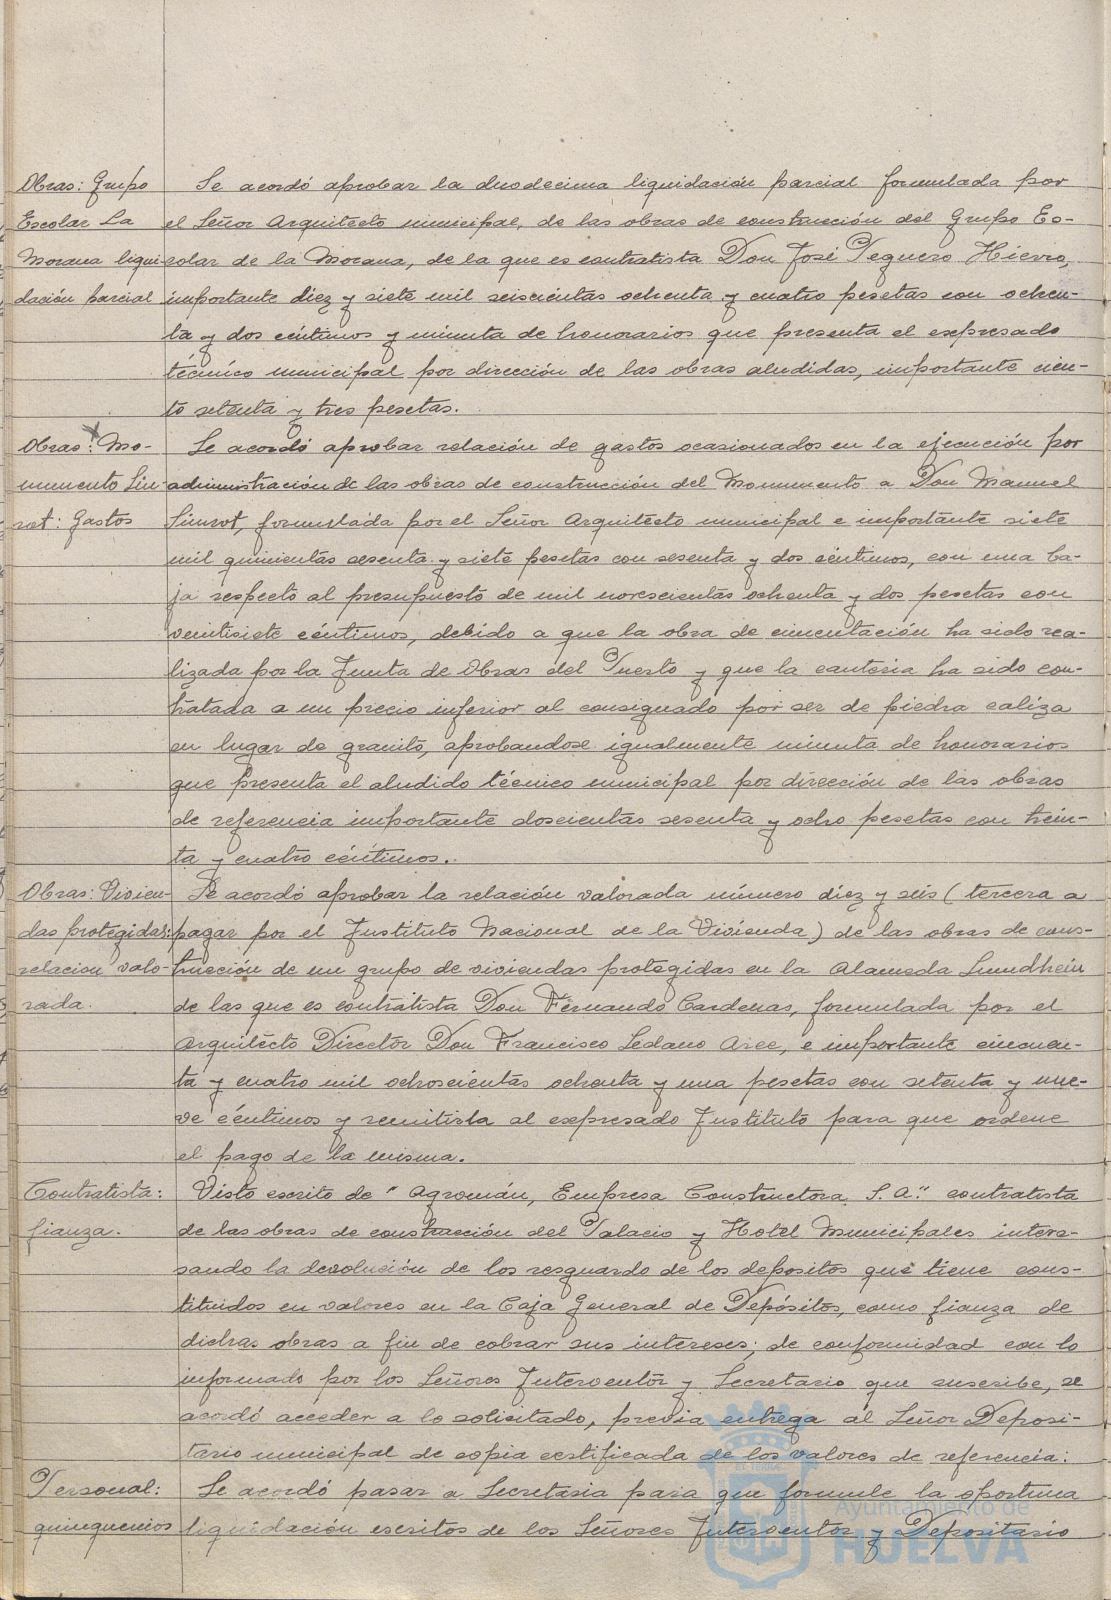 Obras: Grupo
Escolar La
Morana liqui-
dación parcial
Se acordó aprobar la duodecima liquidación parcial formulada por
el Señor Arquitecto municipal, de las obras de construcción del Grupo Es-
colar de la Morana, de la que es contratista Don José Peguero Hierro,
importante diez y siete mil seiscientas ochenta y cuatro pesetas con ochen-
ta y dos céntimos y minuta de honorarios que presenta el expresado
técnico municipal por dirección de las obras aludidas, importante cien-
to setenta y tres pesetas.
Obras: Mo-
numento Siu-
rot: Gastos
Se acordó aprobar relación de gastos ocasionados en la ejecución por
administración de las obras de construcción del Monumento a Don Manuel
Siurot, formulada por el Señor Arquitecto municipal e importante siete
mil quinientas sesenta y siete pesetas con sesenta y dos céntimos, con una ba-
ja respecto al presupuesto de mil novescientas ochenta y dos pesetas con
veintisiete céntimos, debido a que la obra de cimentación ha sido rea-
lizada por la Junta de Obras del Puerto y que la cantería ha sido con-
tratada a un precio inferior al consignado por ser de piedra caliza
en lugar de granito, aprobandose igualmente minuta de honorarios
que presenta el aludido técnico municipal por dirección de las obras
de referencia importante doscientas sesenta y ocho pesetas con trein-
ta y cuatro céntimos.
Obras: Vivien-
das protegidas:
relacion valo-
rada.
Se acordó aprobar la relación valorada número diez y seis (tercera a
pagar por el Instituto Nacional de la Vivienda) de las obras de cons-
trucción de un grupo de viviendas protegidas en la Alameda Sundheim
de las que es contratista Don Fernando Cardenas, formulada por el
Arquitecto Director Don Francisco Sedano Arce, e importante cincuen-
ta y cuatro mil ochoscientas ochenta y una pesetas con setenta y nue-
ve céntimos y remitirla al expresado Instituto para que ordene
el pago de la misma.
Contratista:
fianza.
Visto escrito de "Agromán, Empresa Constructora S.A." contratista
de las obras de construcción del Palacio y Hotel Municipales intere-
sando la devolución de los resguardo de los depositos que tiene cons-
tituidos en valores en la Caja General de Depósitos, como fianza de
dichas obras a fin de cobrar sus intereses; de conformidad con lo
informado por los Señores Interventor y Secretario que suscribe, se
acordó acceder a lo solicitado, previa entrega al Señor Deposi-
tario municipal de copia certificada de los valores de referencia:
Personal:
quinquenios
Se acordó pasar a Secretaria para que formule la oportuna
liquidación escritos de los Señores Interventor y Depositario
Ayuntamiento de
HUELVA